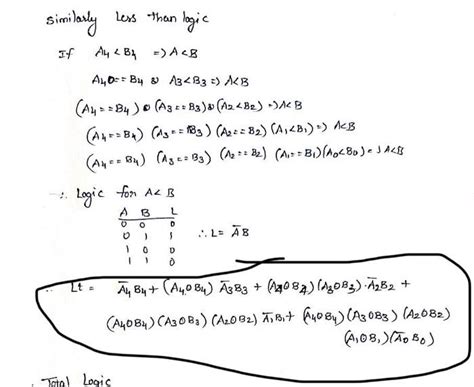 Similarly Less than logic
If A4 < B4 => A < B
A4 0== B4 & A3 < B3 => A<B
(A4 == B4) & (A3 == B3) & (A2 < B2) => A<B
(A4 == B4) (A3 == B3) (A2 == B2) (A1 < B1) => A<B
(A4 == B4) (A3 == B3) (A2 == B2) (A1 == B1) (A0 < B0) => A<B
∴ Logic for A < B
A B L
0 0 0
0 1 1
1 0 0
1 1 0
∴ L = A̅B
Lt = A̅4B4 + (A4⊙B4) A̅3B3 + (A4⊙B4) (A3⊙B3) · A̅2B2 +
(A4⊙B4) (A3⊙B3) (A2⊙B2) A̅1B1 + (A4⊙B4) (A3⊙B3) (A2⊙B2)
(A1⊙B1) (A̅0B0)
Total Logic